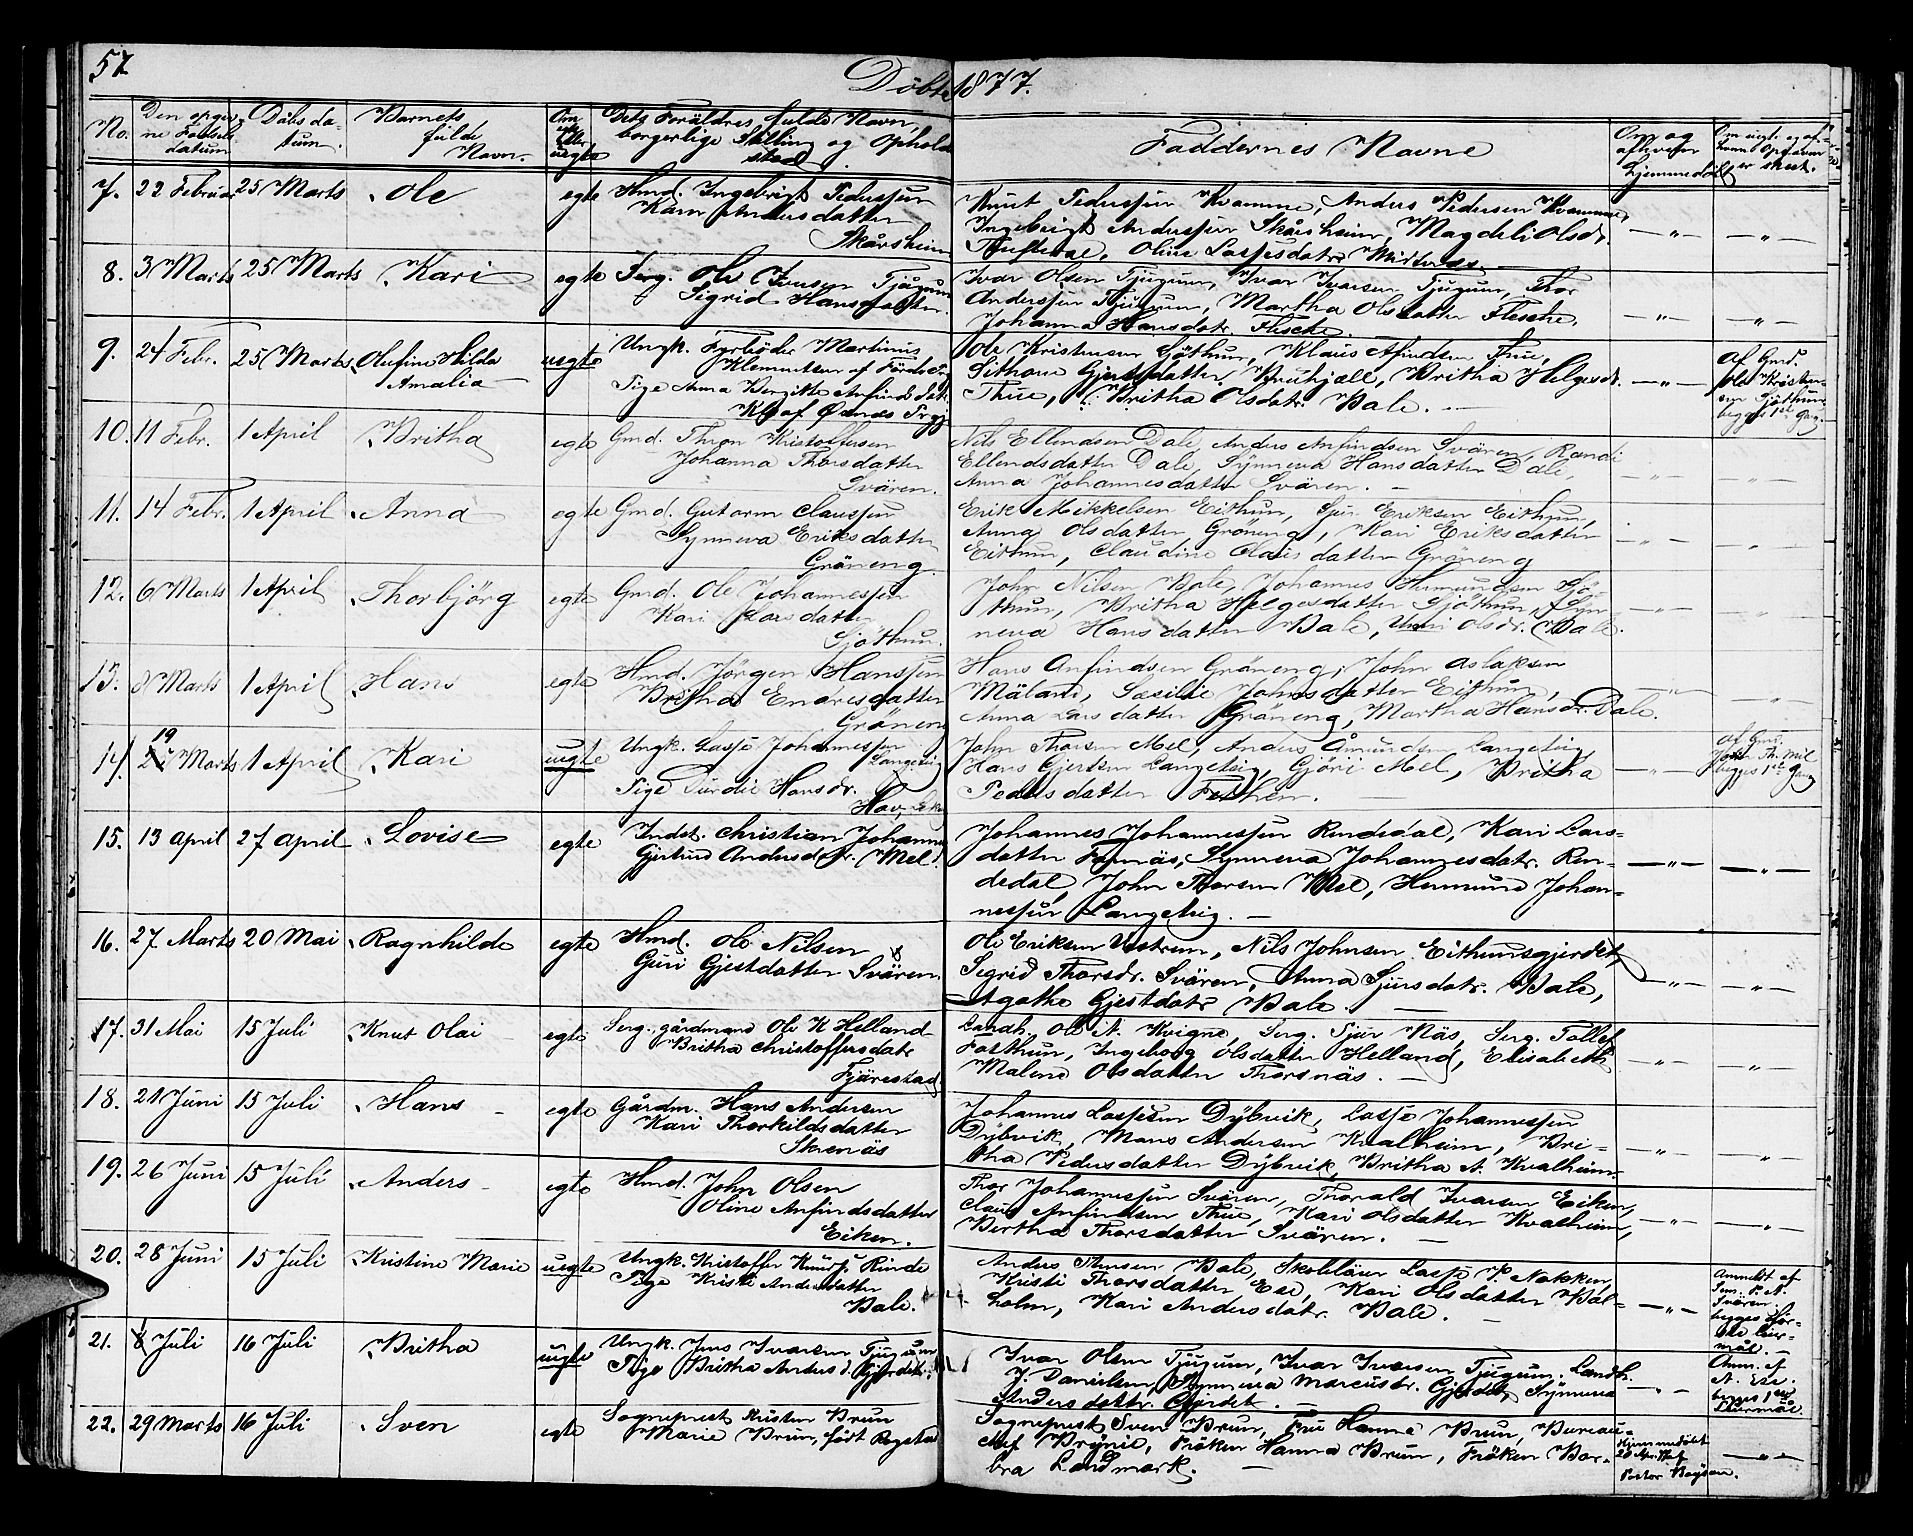 57
Döbte 1877.
No. Den opgivne Födsels datum Döbsdatum. Barnets fulde Navn. Om egte eller uegte Dets Foräldres fulde Navn, borgerlige Stilling og Opholdssted Faddernes Navne Om og af hvem hjemmedöbt
7. 22 Februar 25 Marts Ole egte Hmd. Ingebrigt Pederssön
Kari Andersdatter
Skårsheim
Knut Pederssön Kvamme, Anders Pedersen Kvamme,
Ingebrigt Anderssön Skårsheim, Magdeli Olsdr.
Tufteval, Oline Lassesdatr
8. 3 Marts 25 Marts Kari egte Serg. Ole Ivarsen Tjugum
Sigrid Hansdatter.
Ivar Olsen Tjugum, Ivar Ivarsen Tjugum, Thor
Anderssön Tjugum, Martha Olsdatter Flesche,
Johanna Hansdatr. Flesche.
9. 24 Febr. 25 Marts Olufine Hilda
Amalia
uegte Ungk. Fyrböder Martinus
Klemmetsen af Förde
Pige Anna Bergitte Anfindsdatr.
af Ösnæs
Ole Kristensen Göthun, Klaus Afindsen Thue,
Gjertsdatter, Britha Helgesdr.
Thue, Britha Olsdatr. Bale.
af Gmd.
Ole Kristensen Gjöthun
begges 1st Gang.
10. 11 Febr. 1 April Britha egte Gmd. Thron Kristoffersen
Johanna Thorsdatter
Svären.
Nils Ellendsen Dale, Anders Anfindsen Svären, Randi
Ellendsdatter Dale, Synneva Hansdatter Dale,
Anna Johannesdatter Svären.
11. 14 Febr. 1 April Anna egte Gmd. Gutorm Claussön
Synneva Eriksdatter
Gröneng.
Erik Mikkelsen Eithun, Sjur Eriksen Eithun,
Anna Olsdatter Gröneng, Kari Eriksdatter
Eithun, Claudine Clausdatter Gröneng
12. 6 Marts 1 April Thorbjörg egte Gmd. Ole Johannessön
Kari Larsdatter
Gjöthun.
John Nilsen Bale, Johannes Hermundsen Gjö-
thun, Britha Helgesdatter Gjöthun, Syn-
neva Hansdatter Bale, Olsdr. Bale.
13. 8 Marts 1 April Hans egte Hmd. Jörgen Hanssön
Britha Endresdatter
Gröneng
Hans Anfindsen Gröneng, John Aslaksen
Mäland, Säsilie Johnsdatter Eithun,
Anna Larsdatter Gröneng, Martha Hansdr. Dale.
14. 19 Marts 1 April Kari uegte Ungk. Lasse Johannessön
Langeteig
Pige Durdie Hansdr.
Hov, Lek
John Thorsen Mel, Anders Åmundsen Langeteig,
Hans Gjertsen Langeteig, Gjöri Mel, Britha
Pedersdatter Fethen.
af Gmd.
John Th. Mel
begges 1st Gang
15. 13 April 27 April Lovise egte Indst. Christian Johannes
Gjertrud Andersdtr. Mel.
Johannes Johannessön Rendedal, Kari Lars-
datter Farnäs, Synneva Johannesdatr. Ren-
dedal, John Thorsen Mel, Hermund Johan-
nessön Langeteig.
16. 27 Marts 20 Mai Ragnhilde egte Hmd. Ole Nilsen
Guri Gjestdatter Svären.
Ole Eriksen Vestrem, Nils Johnsen Eithunsgjerdet,
Segrid Thorsdr. Svären, Anna Sjursdatr. Bale,
Agathe Gjestdatr Bale.
17. 31 Mai 15 Juli Knut Olai egte Serg. gårdmand Ole K Helland
Britha Christoffersdatr
Fjärestad
Landh. Ole N. Kvigne, Serg. Sjur Näs, Serg. Tollef
Farthun, Ingeborg Olsdatter Helland, Elisabeth
Malene Olsdatter Thorsnäs.
18. 21 Juni 15 Juli Hans egte Gårdm. Hans Andersen
Kari Thorkildsdatter
Skrenäs
Johannes Lassesen Dybvik, Lasse Johannessön
Dybvik, Mons Andersen Kvalheim, Bri-
tha Pedersdatter Dybvik, Britha A. Kvalheim.
19. 26 Juni 15 Juli Anders egte Hmd. John Olsen
Oline Anfindsdatter
Eiken.
Thor Johannessön Svären, Thorald Ivarsen Eiken,
Claus Anfindsen Thue, Kari Olsdatter Kvalheim,
Bertha Thorsdatter Svären.
20. 28 Juni 15 Juli Kristine Marie uegte Ungk. Kristoffer Knuds. Rinde
Pige Kristi Andersdatter
Bale.
Anders Thorsen Bale, Skolelärer Lasse P. Nokken,
Kristi Thorsdatter Ese, Kari Olsdatter Bal-
holm, Kari Andersdatr. Bale.
Anmeldt af
Svären.
begges för-
ste Leier-
mål.
21. 8 Juli 16 Juli Britha uegte Ungk. Jens Ivarsen Tjugum
Pige Britha Anders d. Gjerdet.
Ivar Olsen Tjugum, Ivar Ivarsen Tjugum, Landh.
J. Danielsen, Synneva Marcusdr. Gjerdet, Synneva
Andersdattr. Gjerdet.
Anm. af
A. Ese.
begges 1ste
Leiermål.
22. 29 Marts 16 Juli Sven egte Sogneprest Kristen Brun
Marie Brun, födt Rogstad
Sogneprest Sven Brun, Fru Hanna Brun, Bureau-
chef Brynie, Fröken Hanna Brun, Fröken Bar-
bra Landmark.
Hjemmedöbt
20 Apr. af
Pastor Bøysen.